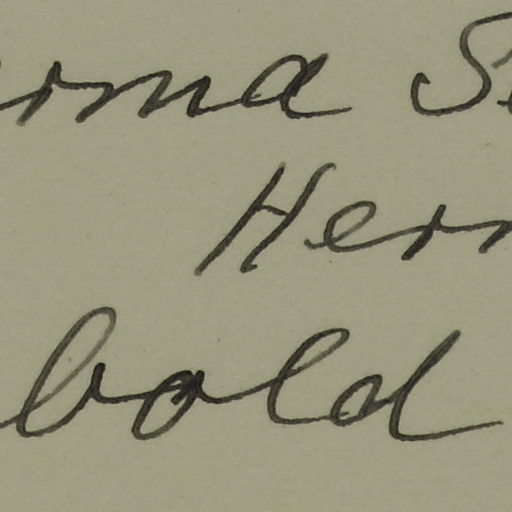 orma S
Herr
bold